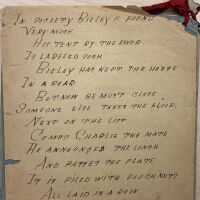 In society Bigley is found
Very much
His tent by the river
Is labeled such
Bigley has kept the house
In a roar
But now he must close
Someone else takes the floor.
Next on the list
Comes Charlie the mate
He announces the lunch
And passes the plate
It is piled with doughnuts
All laid in a row